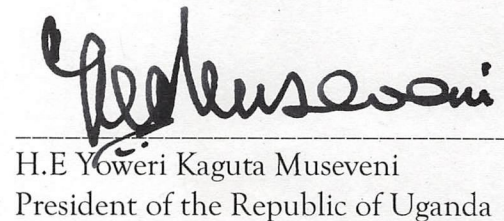 Museveni
H.E Yoweri Kaguta Museveni
President of the Republic of Uganda